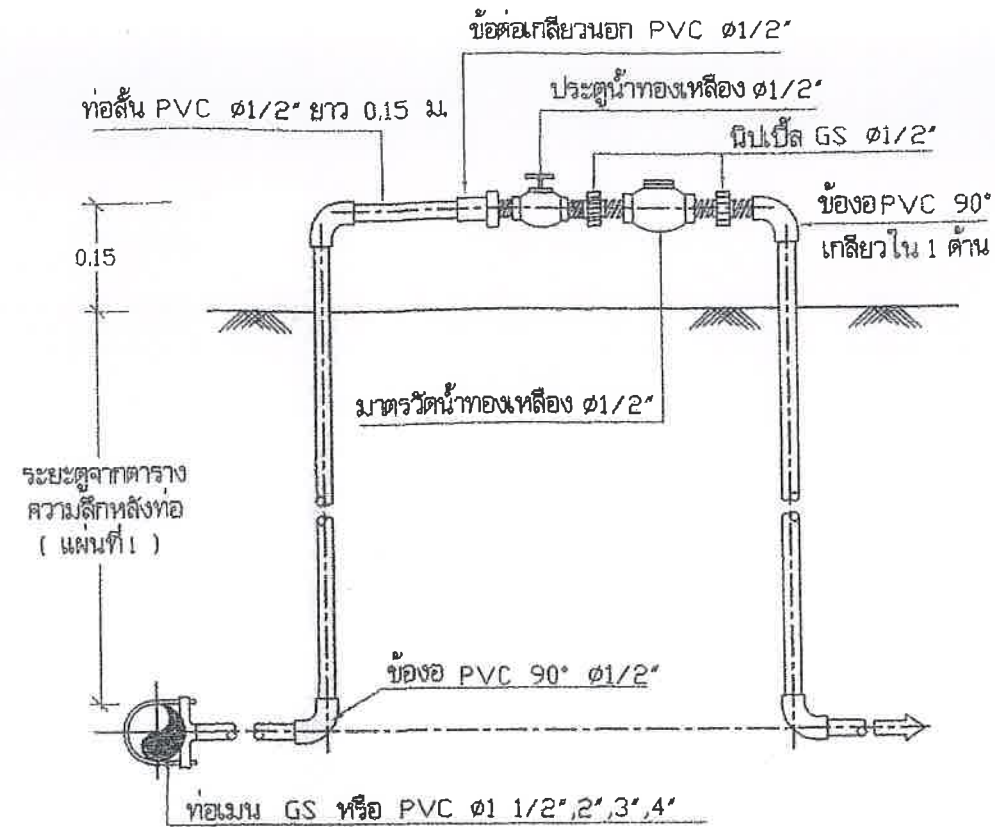 ข้อต่อเกลียวนอก PVC ø1/2"
ท่อสั้น PVC ø1/2" ยาว 0.15 ม.
ประตูน้ำทองเหลือง ø1/2"
นิปเปิ้ล GS ø1/2"
ข้องอ PVC 90°
เกลียวใน 1 ด้าน
0.15
มาตรวัดน้ำทองเหลือง ø1/2"
ระยะดูจากตาราง
ความลึกหลังท่อ
( แผ่นที่1 )
ข้องอ PVC 90° ø1/2"
ท่อเมน GS หรือ PVC ø1 1/2",2",3",4"